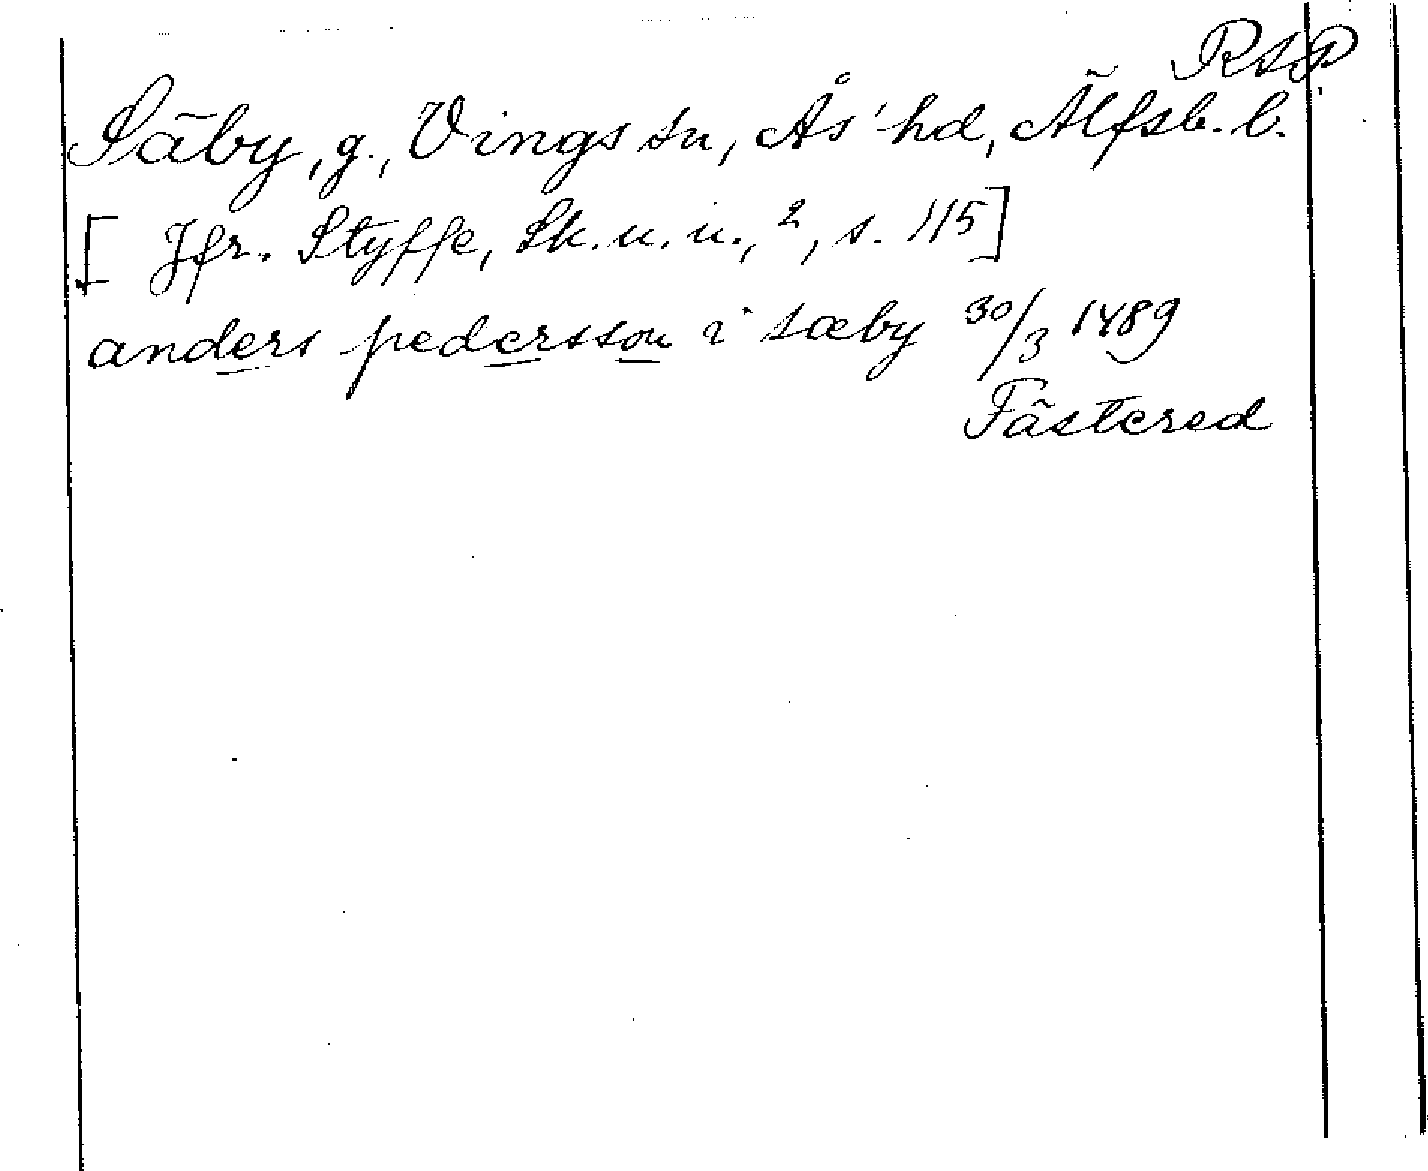 RAP
Säby, g., Vings sn, Ås' hd, Älfsb. l.
[ Jfr. Styffe, Sk. u. u., 2, s. 115]
anders pedersson i sæby 30/3 1489
Fästered